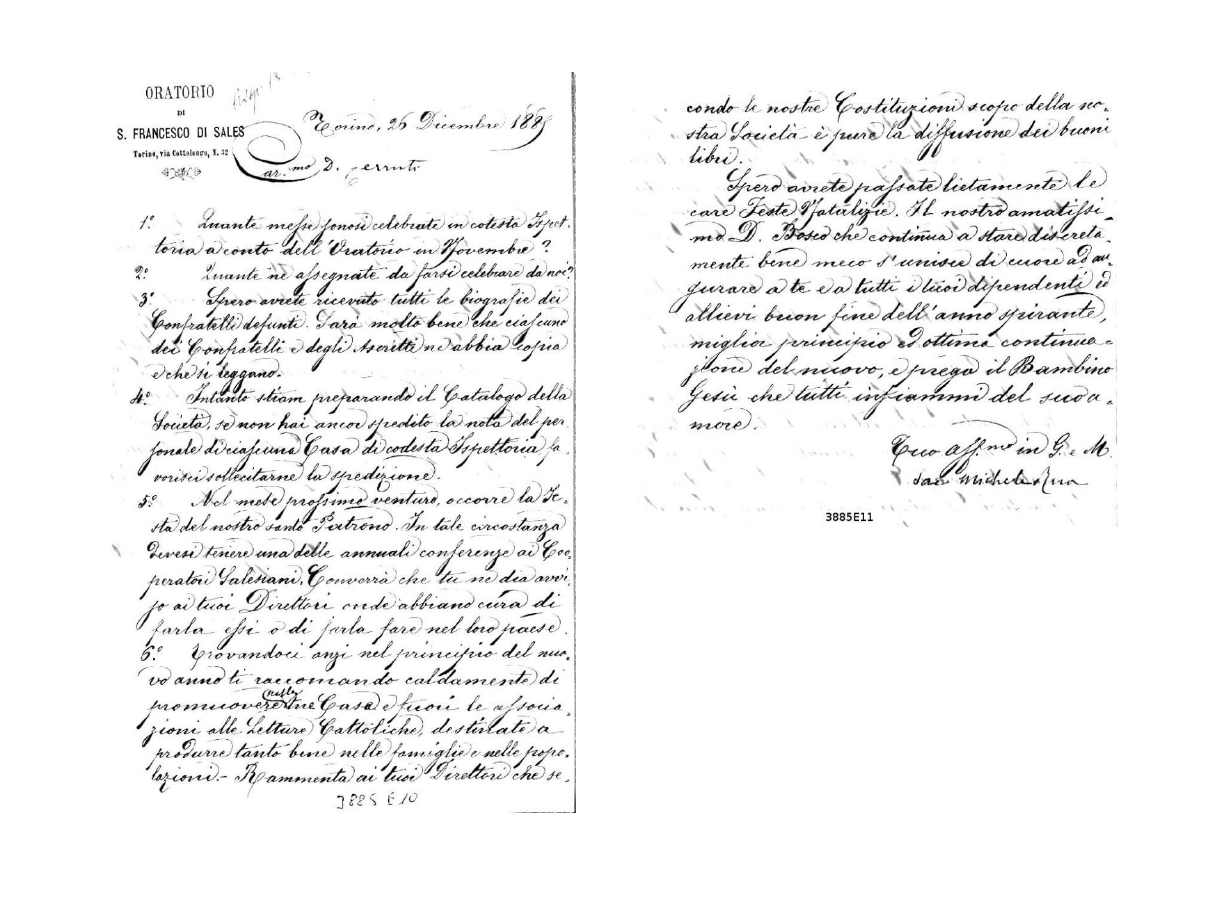 ORATORIO
DI
S. FRANCESCO DI SALES
Torino, via Cottolengo, N. 32
Torino, 26 Dicembre 1885
Car.mo D. Cerruti
1.° Quante messe sonosi celebrate in cotesta Ispet-
toria a conto dell'Oratorio in Novembre?
2.° Quante ne assegnate da farsi celebrare da noi?
3.° Spero avrete ricevuto tutti le biografie dei
Confratelli defunti. Sarà molto bene che ciascuno
dei Confratelli e degli Ascritti ne abbia copia
e che si leggano.
4.° Intanto stiam preparando il Catalogo della
Società, se non hai ancor spedito la nota del per
sonale di ciascuna Casa di codesta Ispettoria fa-
vorisci sollecitarne la spedizione.
5.° Nel mese prossimo venturo, occorre la Fe-
sta del nostro santo Patrono. In tale circostanza
devesi tenere una delle annuali conferenze ai Coo-
peratori Salesiani. Converrà che tu ne dia avvi-
so ai tuoi Direttori onde abbiano cura di
farla essi o di farla fare nel loro paese.
6.° Trovandoci anzi nel principio del nuo-
vo anno ti raccomando caldamente di
promuovere nelle Case e fuori le associa-
zioni alle Letture Cattoliche, destinate a
produrre tanto bene nelle famiglie e nelle popo-
lazioni.- Rammenta ai tuoi Direttori che se-
3885 E10
condo le nostre Costituzioni scopo della no-
stra Società è pure la diffusione dei buoni
libri.
Spero avrete passate lietamente le
care Feste Natalizie. Il nostro amatissi-
mo D. Bosco che continua a stare discreta-
mente bene meco s'unisce di cuore ad au-
gurare a te e a tutti i tuoi dipendenti ed
allievi buon fine dell'anno spirante,
miglior principio ed ottima continua-
zione del nuovo, e prega il Bambino
Gesù che tutti infiammi del suo a-
more.
Tuo aff.mo in G. e M.
Sac. Michele Rua
3885E11